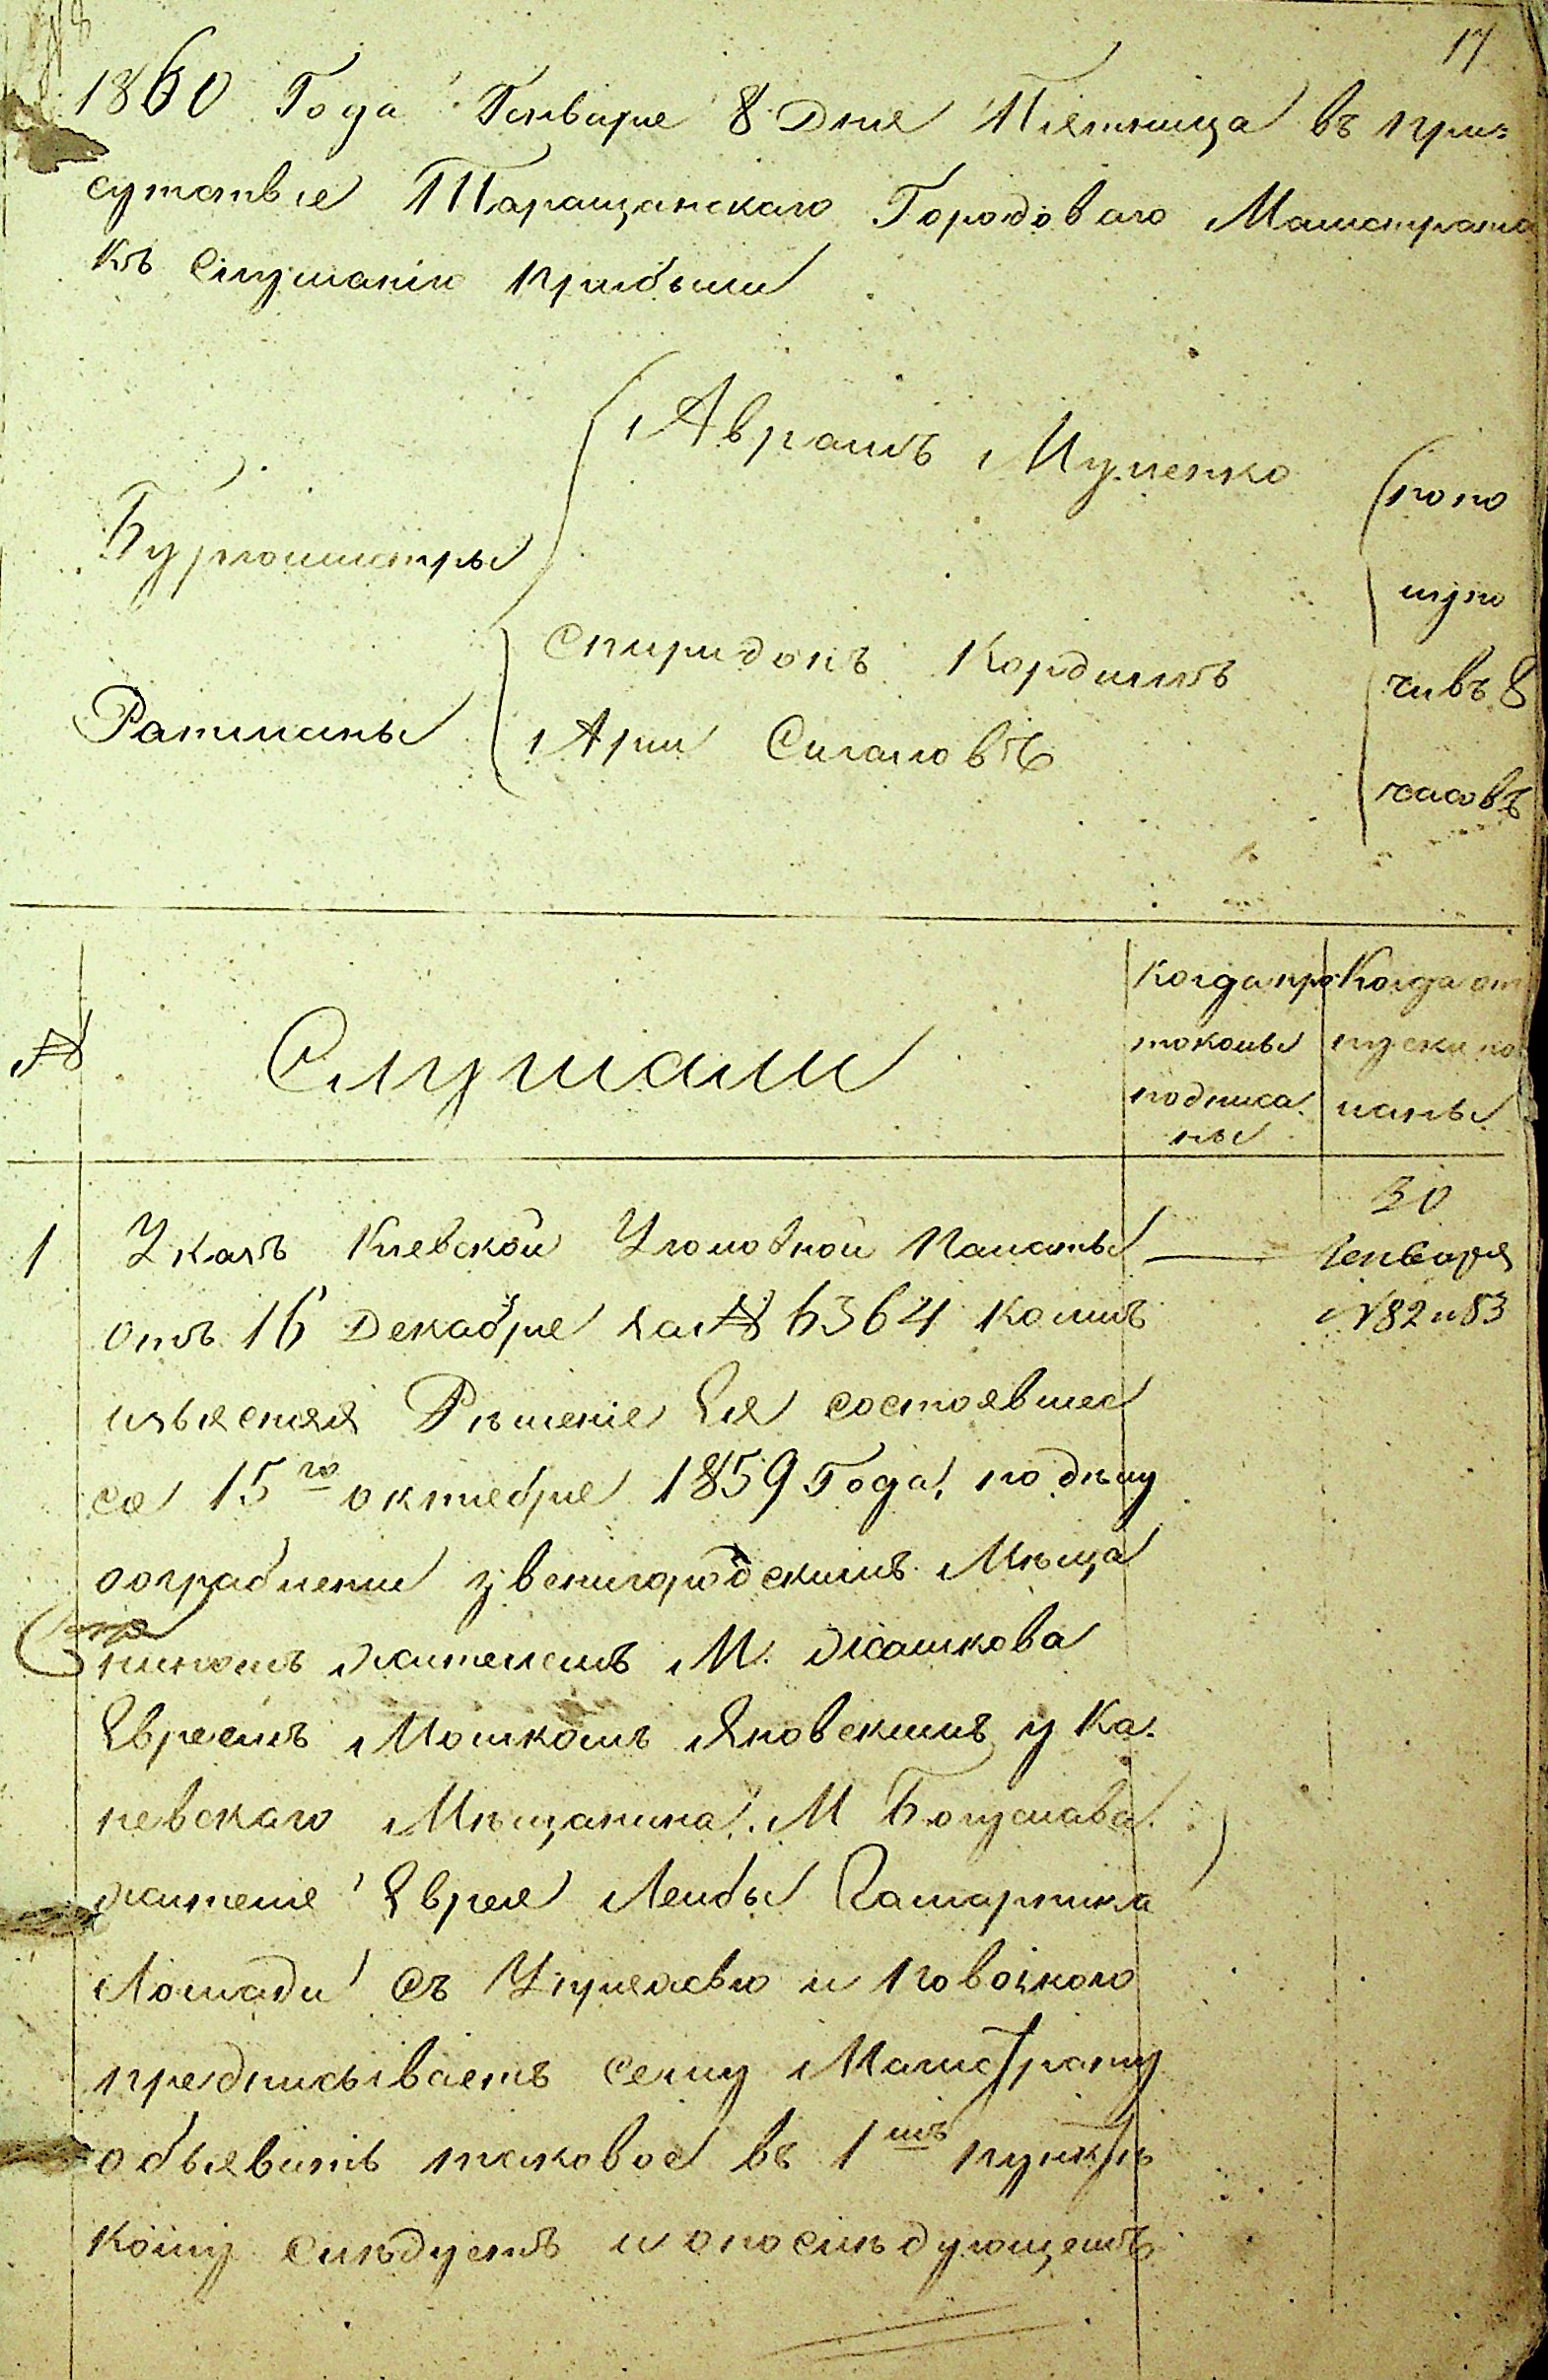 17
1860 Года Генваря 8 Дня Пятница въ при-
сутствіе Таращанскаго Городоваго Магистрата
къ слушанію прибыли
Аврамъ
Бургомистры
Спиридонъ Кордишъ
Ратманы
Арій Сигаловъ
попо
лудно
чивъ 8
часовъ
№
Слушали
Когда про
токолы
подписа
ны
Когда от
пуски по
ланы
1
Указъ Кіевской Уголовной Палаты
отъ 16 Декабря за № 6364 коимъ
изъясняя Рѣшеніе Ея состоявшее
ся 15го октября 1859 Года, по дѣлу
о ограбленіи Звенигородскимъ Мѣща
ниномъ жителемъ М. Жашкова
Евреемъ Мошкомъ Яновскимъ у Ка-
невскаго Мѣщанина М Богуслава
жителя Еврея Лейбы Гамарника
лошади съ Упряжью и повозкою
предписываетъ сему Магистрату
объявить таковое въ 1мъ пунктѣ
кому слѣдуетъ и о послѣдующемъ
30
Генваря
№82 и 83